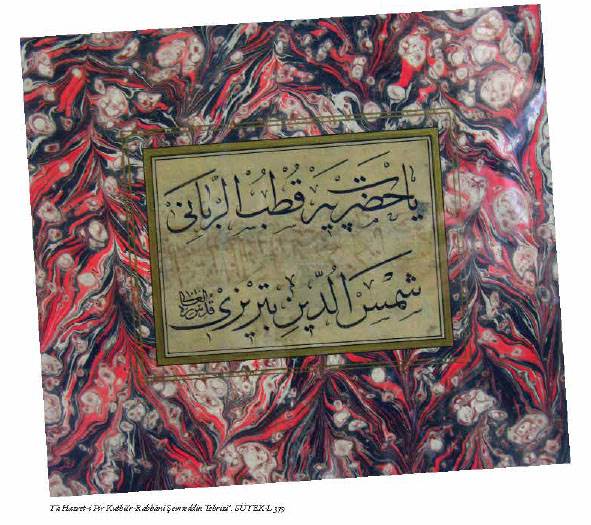 يا حضرت پير قطب الرّبّانى
شمس الدّين تبريزى قدّس سرّه العالى
Ya Hazret-i Pir Kutbü'r-Rabbânî Şemseddin Tebrizî". SÜTEK-L 379